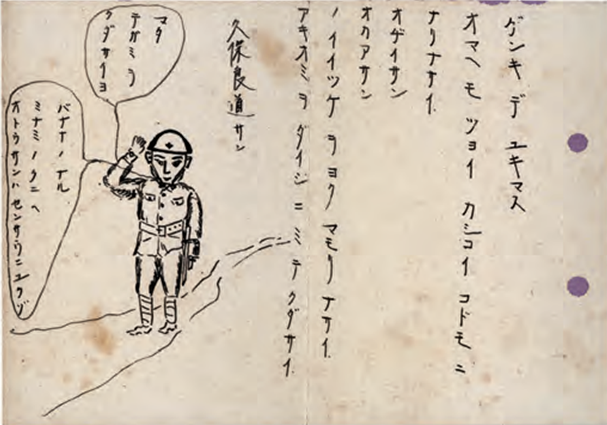 ゲンキデ ユキマス
オマヘモ ツヨイ カシコイ コドモニ
ナリナサイ.
オヂイサン
オカアサン
ノイイツケヲヨク マモリナサイ.
アキオミヲ ダイジニ ミテクダサイ.
久保良道サン
マタ
テガミヲ
クダサイヨ
バナナノナル.
ミナミノクニヘ
オトウサンハ センサウニユクゾ